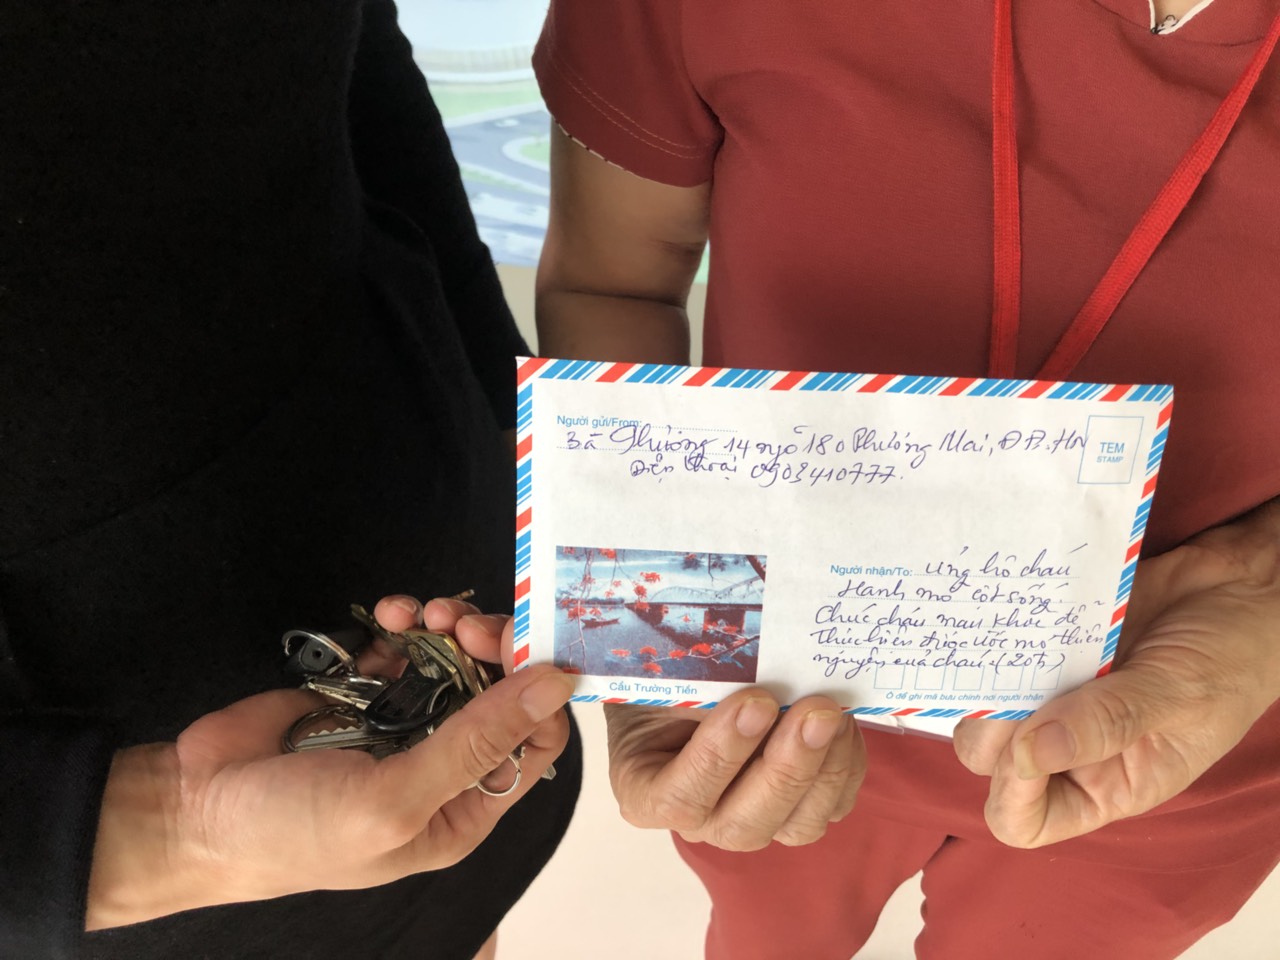 Người gửi/From:
Bà Phương 14 ngõ 180 Phương Mai, ĐĐ. HN
Điện thoại 0903410777.
TEM
STAMP
Người nhận/To: Ủng hộ cháu
Hạnh mổ cột sống.
Chúc cháu mau khỏe để
thực hiện được ước mơ thiện
nguyện của cháu. (20tr)
Cầu Trường Tiền
Ô để ghi mã bưu chính nơi người nhận